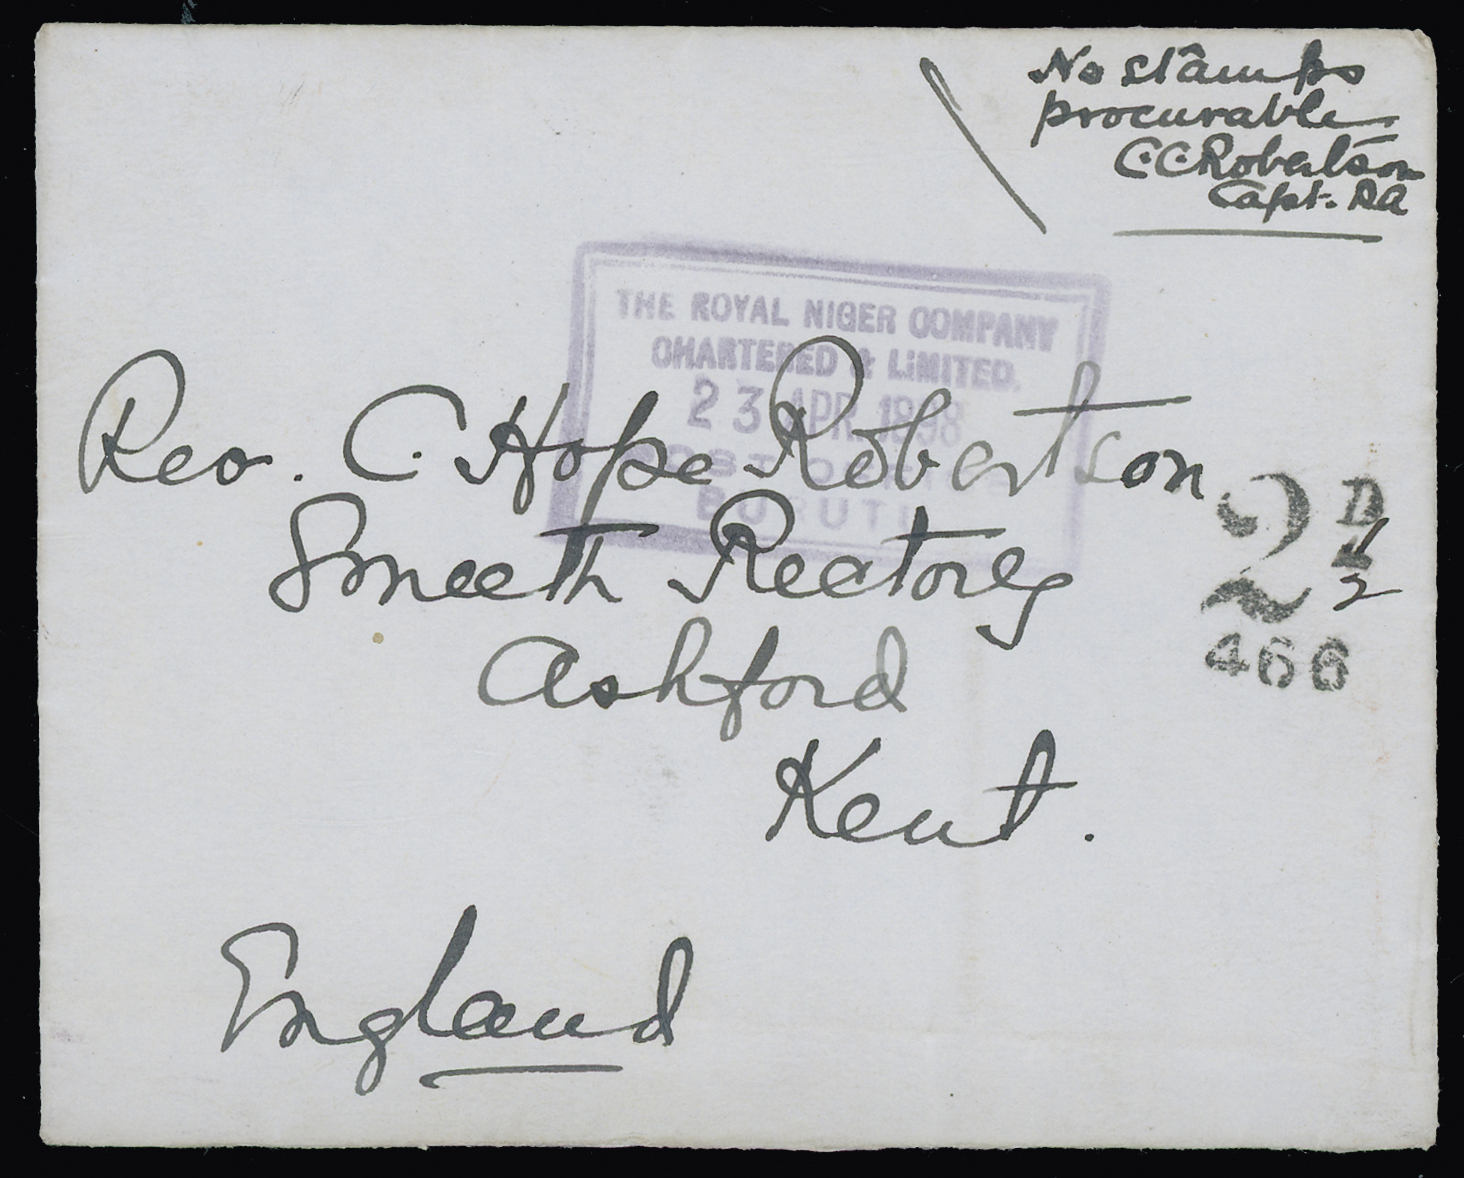 No stamps
procurable
C. C. Robertson
Capt. RA
THE ROYAL NIGER COMPANY
CHARTERED & LIMITED.
23 APR. 1898
POST OFFICE
BURUTU
Rev. C. Hope Robertson
Smeeth Rectory
Ashford
Kent.
England
2 D 1/2
466